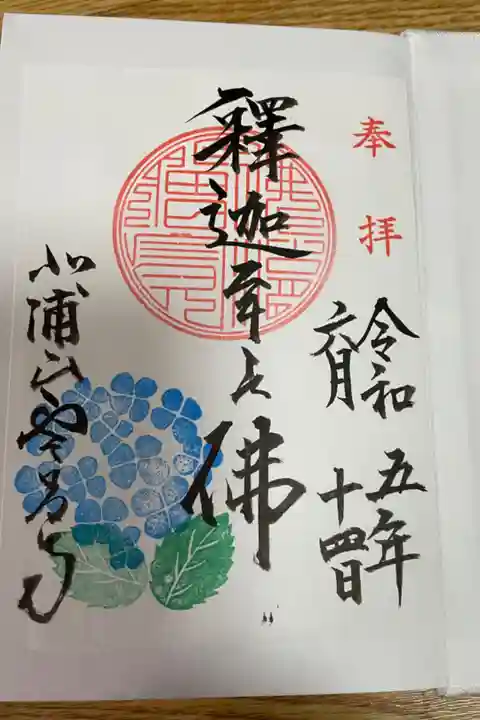 奉拝
令和五年
六月十四日
釋迦牟尼佛
北浦山雲昌寺